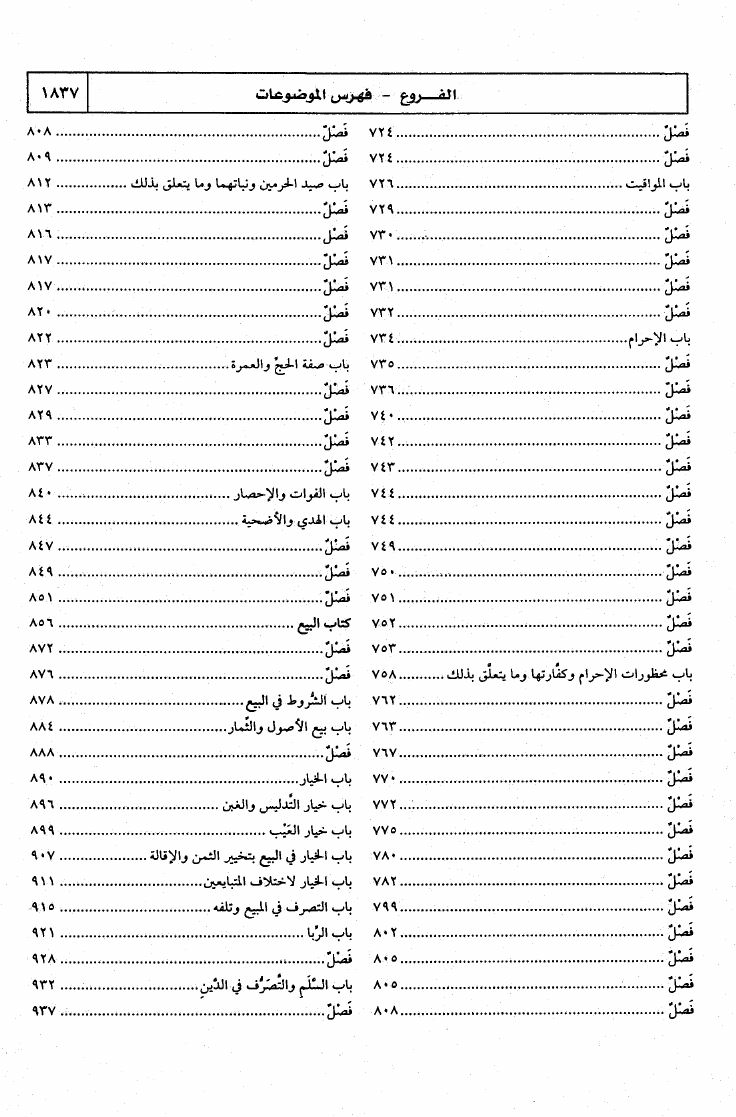 الفـــروع - فهرس الموضوعات ١٨٣٧
فَصْلٌ ........ ٧٢٤
فَصْلٌ ........ ٧٢٤
باب المواقيت ........ ٧٢٦
فَصْلٌ ........ ٧٢٩
فَصْلٌ ........ ٧٣٠
فَصْلٌ ........ ٧٣١
فَصْلٌ ........ ٧٣١
فَصْلٌ ........ ٧٣٢
باب الإحرام ........ ٧٣٤
فَصْلٌ ........ ٧٣٥
فَصْلٌ ........ ٧٣٦
فَصْلٌ ........ ٧٤٠
فَصْلٌ ........ ٧٤٢
فَصْلٌ ........ ٧٤٣
فَصْلٌ ........ ٧٤٤
فَصْلٌ ........ ٧٤٤
فَصْلٌ ........ ٧٤٩
فَصْلٌ ........ ٧٥٠
فَصْلٌ ........ ٧٥١
فَصْلٌ ........ ٧٥٢
فَصْلٌ ........ ٧٥٣
باب محظورات الإحرام وكفَّارتها وما يتعلَّق بذلك ........ ٧٥٨
فَصْلٌ ........ ٧٦٢
فَصْلٌ ........ ٧٦٣
فَصْلٌ ........ ٧٦٧
فَصْلٌ ........ ٧٧٠
فَصْلٌ ........ ٧٧٢
فَصْلٌ ........ ٧٧٥
فَصْلٌ ........ ٧٨٠
فَصْلٌ ........ ٧٨٢
فَصْلٌ ........ ٧٩٩
فَصْلٌ ........ ٨٠٢
فَصْلٌ ........ ٨٠٥
فَصْلٌ ........ ٨٠٥
فَصْلٌ ........ ٨٠٨
فَصْلٌ ........ ٨٠٨
فَصْلٌ ........ ٨٠٩
باب صيد الحرمين ونباتهما وما يتعلق بذلك ........ ٨١٢
فَصْلٌ ........ ٨١٣
فَصْل ........ ٨١٦
فَصْلٌ ........ ٨١٧
فَصْلٌ ........ ٨١٧
فَصْلٌ ........ ٨٢٠
فَصْلٌ ........ ٨٢٢
باب صفة الحجِّ والعمرة ........ ٨٢٣
فَصْلٌ ........ ٨٢٧
فَصْلٌ ........ ٨٢٩
فَصْلٌ ........ ٨٣٣
فَصْلٌ ........ ٨٣٧
باب الفوات والإحصار ........ ٨٤٠
باب الهدي والأضحية ........ ٨٤٤
فَصْلٌ ........ ٨٤٧
فَصْلٌ ........ ٨٤٩
فَصْلٌ ........ ٨٥١
كتاب البيع ........ ٨٥٦
فَصْلٌ ........ ٨٧٢
فَصْلٌ ........ ٨٧٦
باب الشُّروط في البيع ........ ٨٧٨
باب بيع الأصول والثِّمار ........ ٨٨٤
فَصْلٌ ........ ٨٨٨
باب الخيار ........ ٨٩٠
باب خيار التَّدليس والغبن ........ ٨٩٦
باب خيار العَيْب ........ ٨٩٩
باب الخيار في البيع بتخيير الثمن والإقالة ........ ٩٠٧
باب الخيار لاختلاف المتبايعين ........ ٩١١
باب التصرف في المبيع وتلفه ........ ٩١٥
باب الرِّبا ........ ٩٢١
فَصْلٌ ........ ٩٢٨
باب السَّلَمِ والتَّصَرُّف في الدَّينِ ........ ٩٣٢
فَصْلٌ ........ ٩٣٧